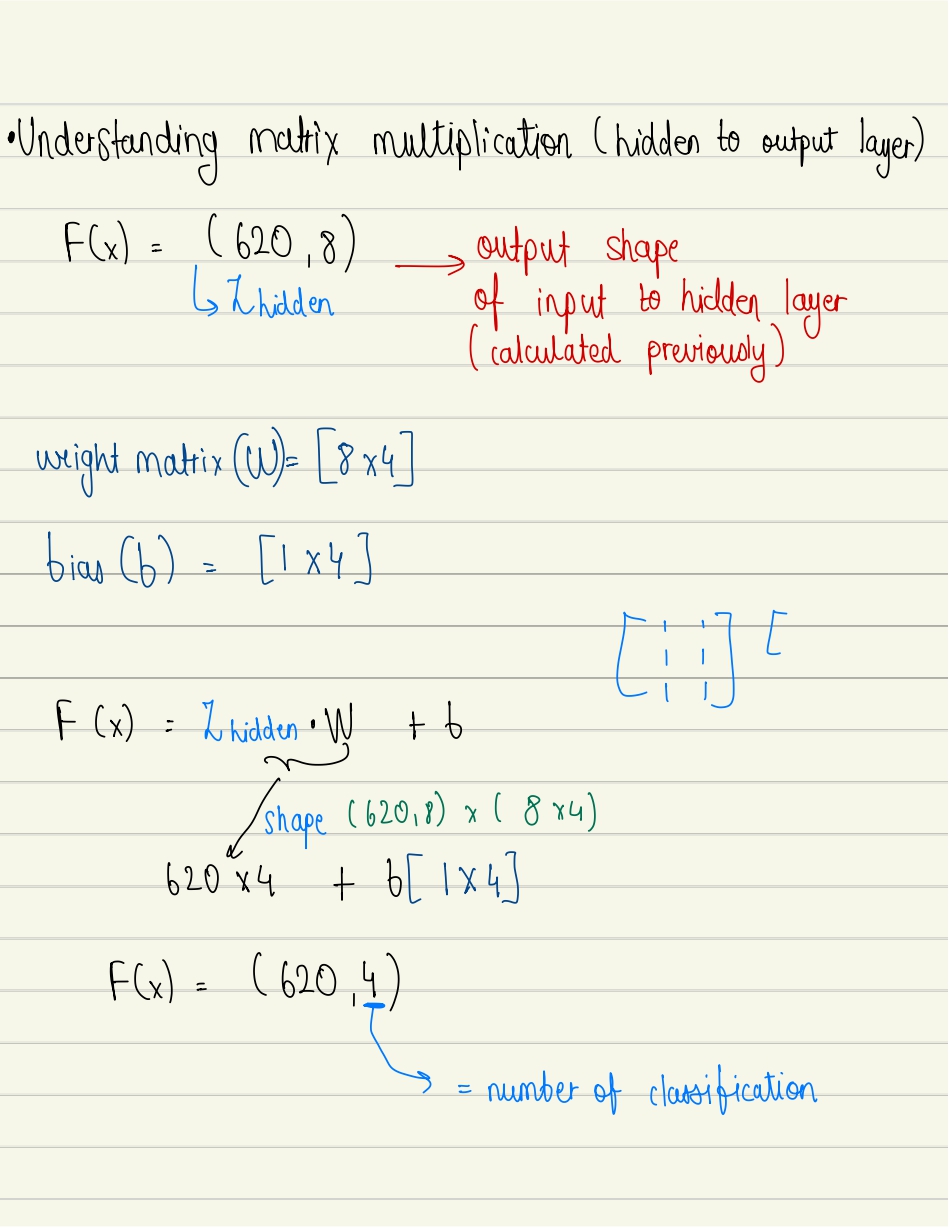 •Understanding matrix multiplication (hidden to output layer)
F(x) = (620,8) → output shape
↳ Z hidden
of input to hidden layer
(calculated previously)
weight matrix (W)= [8x4]
bias (b) = [1x4]
F(x) = Z hidden • W + b
shape (620,8) x (8x4)
620x4 + b[1x4]
F(x) = (620,4)
= number of classification